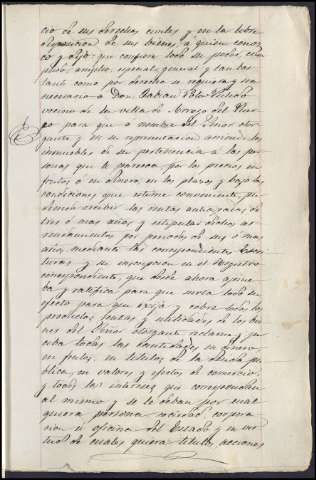 cio de sus derechos civiles y en la libre
disposicion de sus bienes, a quien conoz
co y dijo: que confiere todo su poder, cum
plido, amplio, especial, general y tan bas
tante como por derecho se requiera y sea
necesario a Don
vecino de su villa de Arroyo del Puer
co para que a nombre del Señor otor
gante y en su representacion arriende los
inmuebles de su pertenencia a las per
sonas que le parezca por los precios en
frutos ó en dinero en los plazos y bajo las
condiciones que estime conveniente, pu
diendo recibir las rentas anticipadas de
tres ó mas años, y estipular dichos ar
rendamientos por periodos de seis ó mas
años mediante las correspondientes Escri
turas y su inscripcion en el Registro
correspondiente, que desde ahora aprue
ba y ratifica, para que surta todo su
efecto para que exija y cobre todos los
productos, frutos y utilidades de los bie
nes del Señor otorgante, reclame y per
ciba todas las cantidades en dinero
en frutos, en titulos de la deuda pu
blica, en valores y efectos de comercio,
y todos los intereses que correspondan
al mismo y se le deban por cual
quiera persona, sociedad, corpora
cion ú oficina del Estado y en vir
tud de cuales quiera titulos, acciones